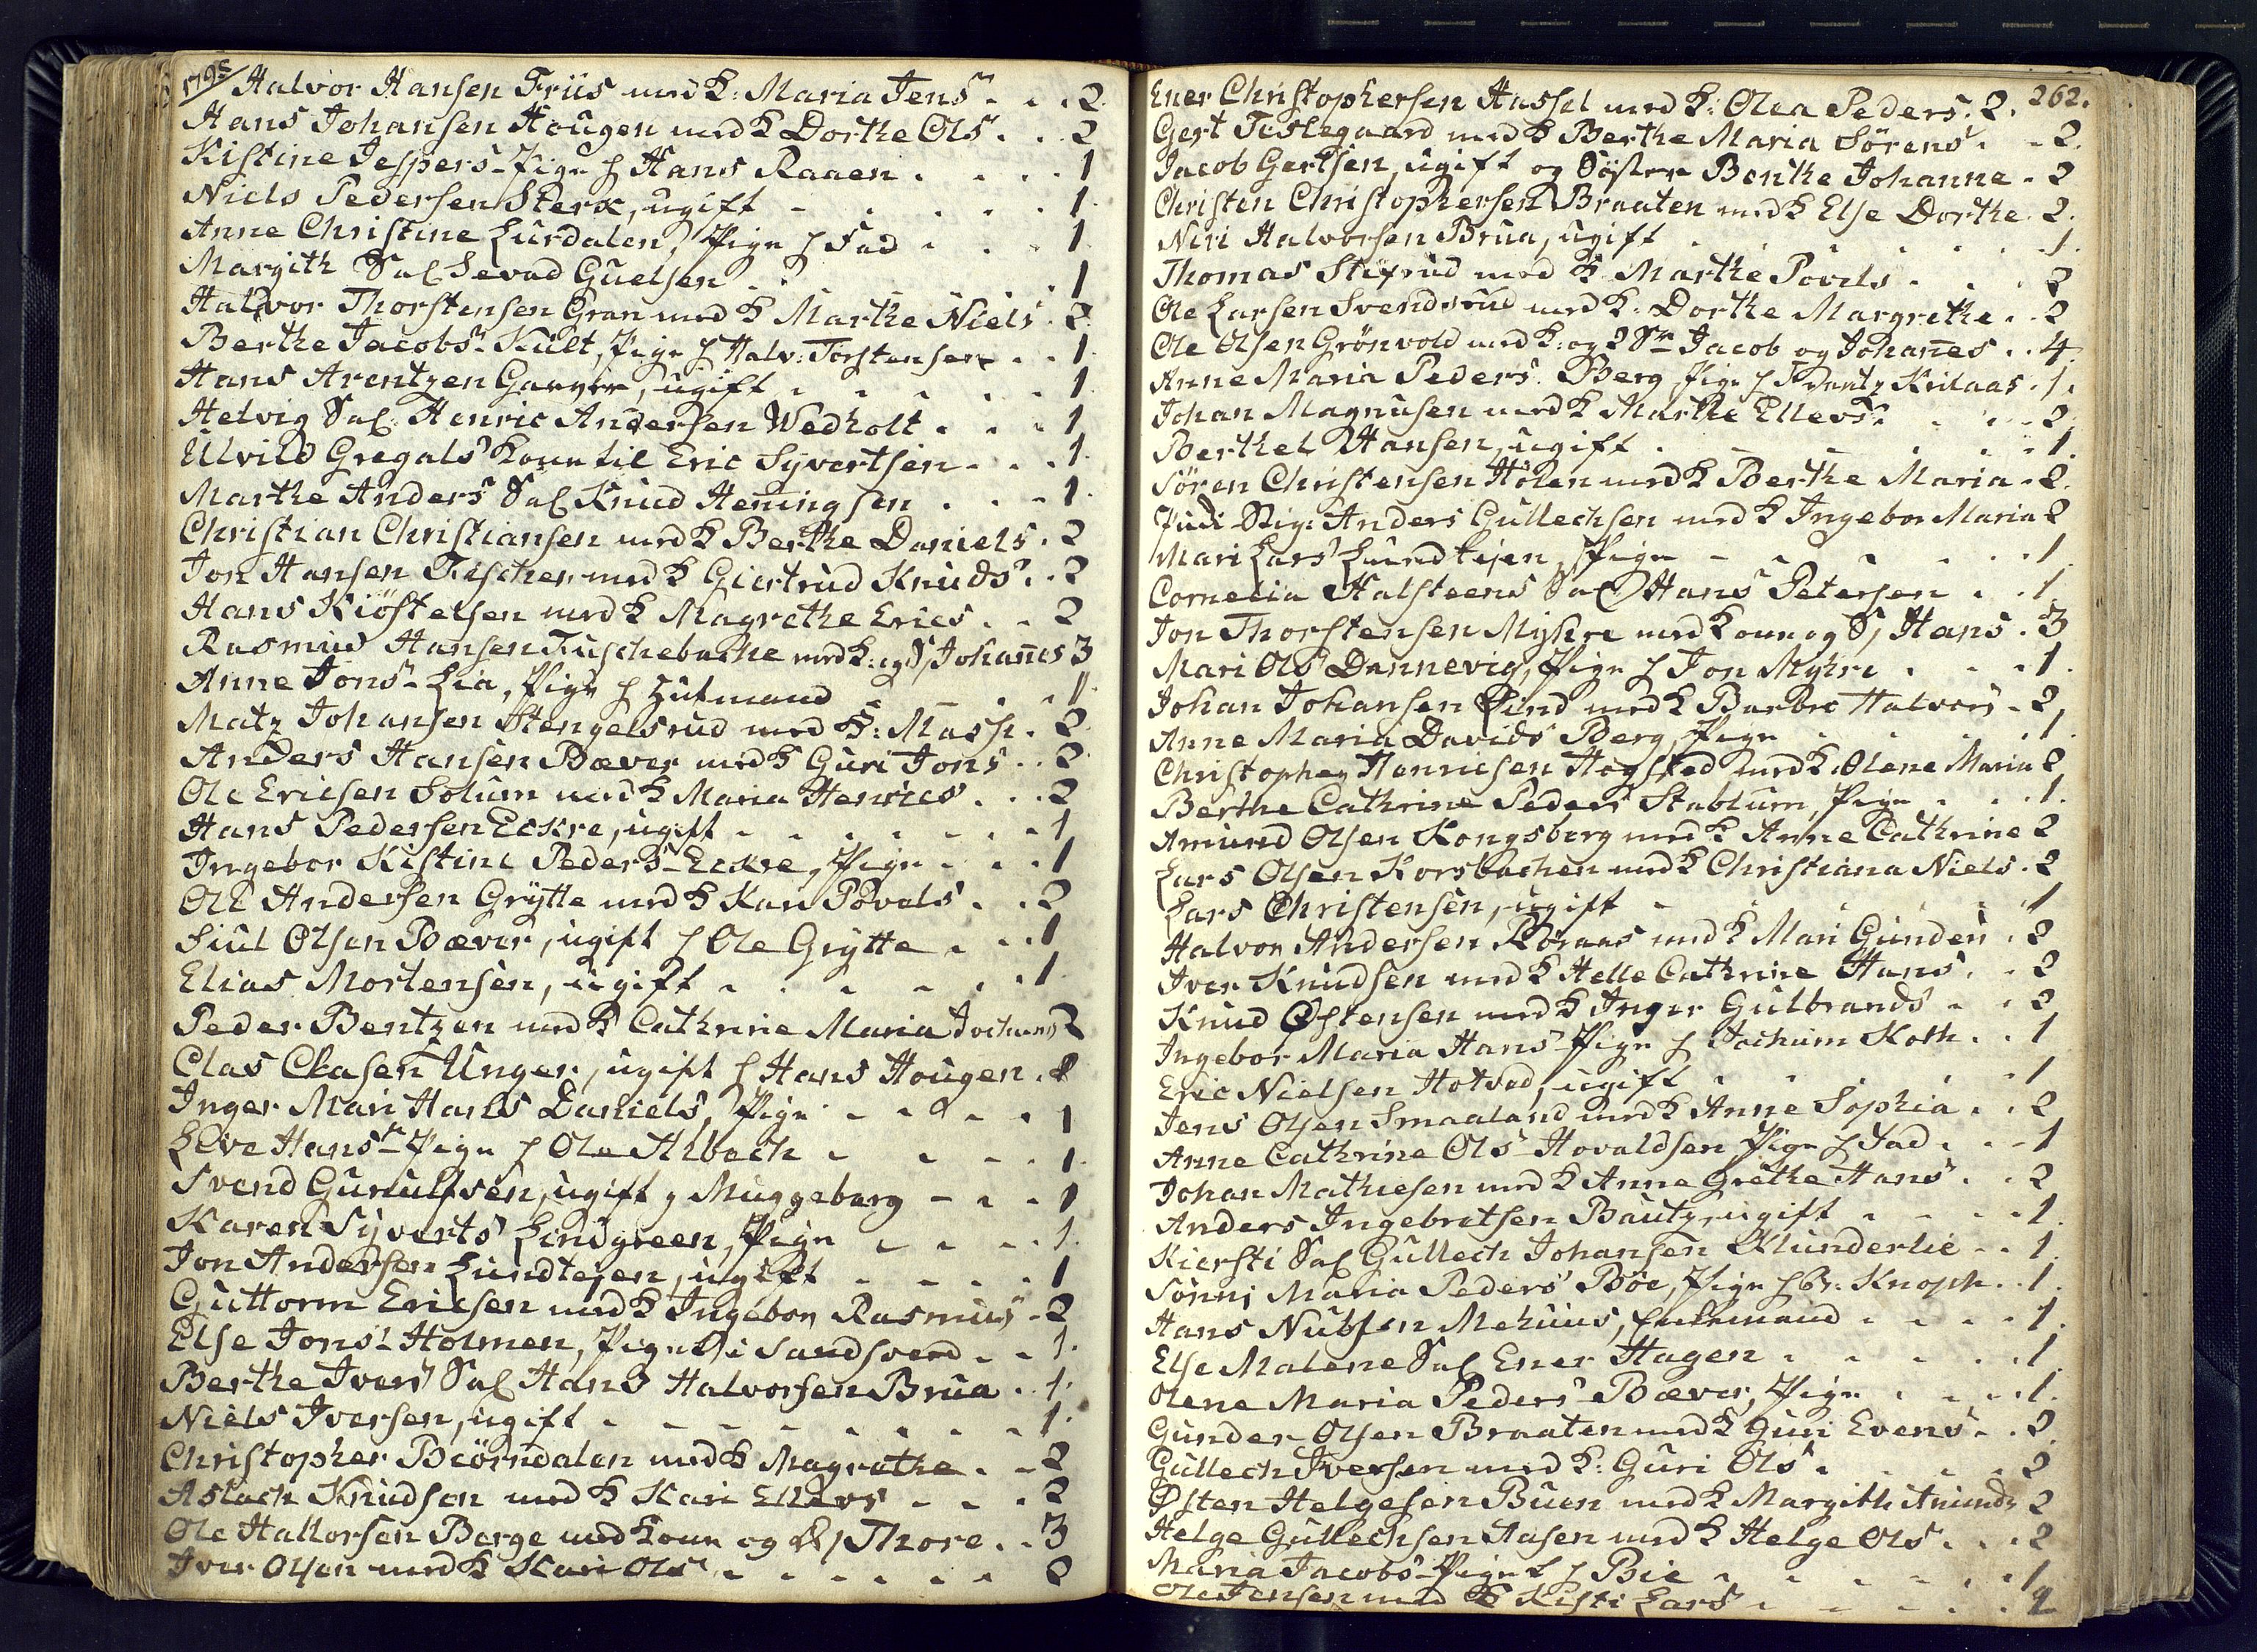 1795
Halvor Hansen Friis med K: Maria Jens . . . 2.
Hans Johansen Hougen med K Dorthe Ols . . . 2
Kistine Jespers - Pige h Hans Raaen . . . . 1
Niels Pedersen Sterx, ugift - . . . . 1.
Anne Christine Lurdalen, Pige h Fad . . . 1
Margith Sal Sevad Guelsen . . . 1
Halvor Thorstensen Gran med K Marthe Niels . 2.
Berthe Jacobs - Kult, Pige h Halv: Torstensen . . 1.
Hans Arentzen Garver, ugift . . . . . 1
Helvig Sal. Henric Andersen Wedholt . . . 1
Ulvild Gregals Kone til Eric Syvertsen . . . 1.
Marthe Anders Sal Knud Heningsen . . . 1.
Christian Christiansen med K Berthe Daniels . 2
Jon Hansen Fischer med K Giertrud Knuds . . 2
Hans Kiöstelsen med K Magrethe Erics . . 2
Rasmus Hansen Fuschebache med K: og S, Johannes 3
Anne Jons - Lia, Pige h . . 1.
Matz Johansen Stengelsrud med K: Mass. . 2.
Anders Hansen Bæver med K Guri Jons . . 2
Ole Ericsen Solum med K Maria Henrics . . . 2
Hans Pedersen Eckre, ugift - . . . . . 1
Ingebor Kistine Peders - Eckre, Pige . . . 1
Ole Andersen Grytte med K Kari Povels . . . 2
Siul Olsen Bæver, ugift h Ole Grytte . . . 1
Elias Mortensen, ugift . . . . . 1
Peder Bentzen med K Cathrine Maria Jochums 2
Clas Clasen Unger, ugift h Hans Hougen . 1
Inger Mari Hans Daniels, Pige . . . . 1
Live Hans - Pige h Ole Ahlbach . . . . 1.
Svend Gunulfsen, ugift h Muggeberg - . . 1
Karen Syverts Lindgreen, Pige . . . . 1.
Jon Andersen Lundtejen, ugift . . . . 1
Guttorm Ericsen med K Ingebor Rasmus - 2
Else Jons - Holmen, Pige i Sandsverd . . 1.
Berthe Ivers Sal Hans Halvorsen Brua . . 1.
Niels Iversen, ugift . . . . . . . 1.
Christopher Biörndalen med K Magrethe . . 2
Aslach Knudsen med K Kari Ellevs . . . 2
Ole Hallorsen Berge med Kone og D, Thore . . 3
Iver Olsen med K Kari Ols . . . . . . 2
262.
Ener Christophersen Hassel med K: Olea Peders . 2.
Gert Teslegaard med K Berthe Maria Sörens . . 2.
Jacob Gertsen, ugift og Söster Benthe Johanne . 2
Christen Christophersen Braaten med K Else Dorthe . 2.
Niri Halvorsen Brua, ugift . . . . . . 1.
Thomas Stixrud med K Marthe Povels . . . 2
Ole Larsen Svendsrud med K: Dorthe Margrethe . . 2
Ole Olsen Grönvold med K: og 2 Sn Jacob og Johannes . . 4.
Anne Maria Peders Berg, Pige h . 1.
Johan Magnusen med K Marthe Ellevs . . . 2.
Berthel Hansen, ugift . . . . . . 1.
Sören Christensen Holen med K Berthe Maria . 2.
Anders Gullechsen med K Ingebor Maria 2
Mari Lars Lundtejen, Pige - . . . . . 1.
Cornelia Halsteens Sal Hans Petersen . . 1.
Jon Thorstensen Myhre med Kone og S, Hans . 3
Mari Ols Dannevig, Pige h Jon Myhre . . . 1.
Johan Johansen Qvind med K Barbro Halvors . 2,
Anne Maria Davids Berg, Pige . . . . 1.
Christopher Henricsen Hogsted med K: Olene Maria 2.
Berthe Cathrine Peders Stablum, Pige . . . 1.
Amund Olsen Kongsberg med K Anne Cathrine 2
Lars Olsen Korsbachen med K Christiana Niels . 2
Lars Christensen, ugift . . . . . 1
Halvor Andersen Röraas med K Mari Gunders . 2
Iver Knudsen med K Helle Cathrine Hans . . 2
Knud Østensen med K Inger Gulbrands . . 2
Ingebor Maria Hans - Pige h Jochum Koth . . 1
Eric Nielsen Hotved, ugift . . . . . 1
Jens Olsen Smaaland med K Anne Sophia . . 2
Anne Cathrine Ols - Hovaldsen, Pige h Fad . . . 1
Johan Mathiesen med K Anne Grethe Hans . . 2
Anders Ingebretsen Bautz, ugift . . . . 1.
Kiersti Sal Gullech Johansen Klunderlie . . 1.
Sönni Maria Peders Böe, Pige h Br: Knoph . . 1.
Hans Nubsen Mehuus, Enkemand . . . . 1.
Else Malene Sal Ener Hagen . . . . . 1.
Olene Maria Peders - Bæver, Pige . . . . 1.
Gunder Olsen Braaten med K Guri Evens . . 2.
Gullech Iversen med K: Guri Ols . . . . 2
Østen Helgesen Buen med K Margith Amunds 2
Helge Gullechsen Aasen med K Helge Ols . . . 2
Maria Jacobs - Pige h Bie . . . . . 1
Ole Jensen med K Kisti Lars . . . . . 2